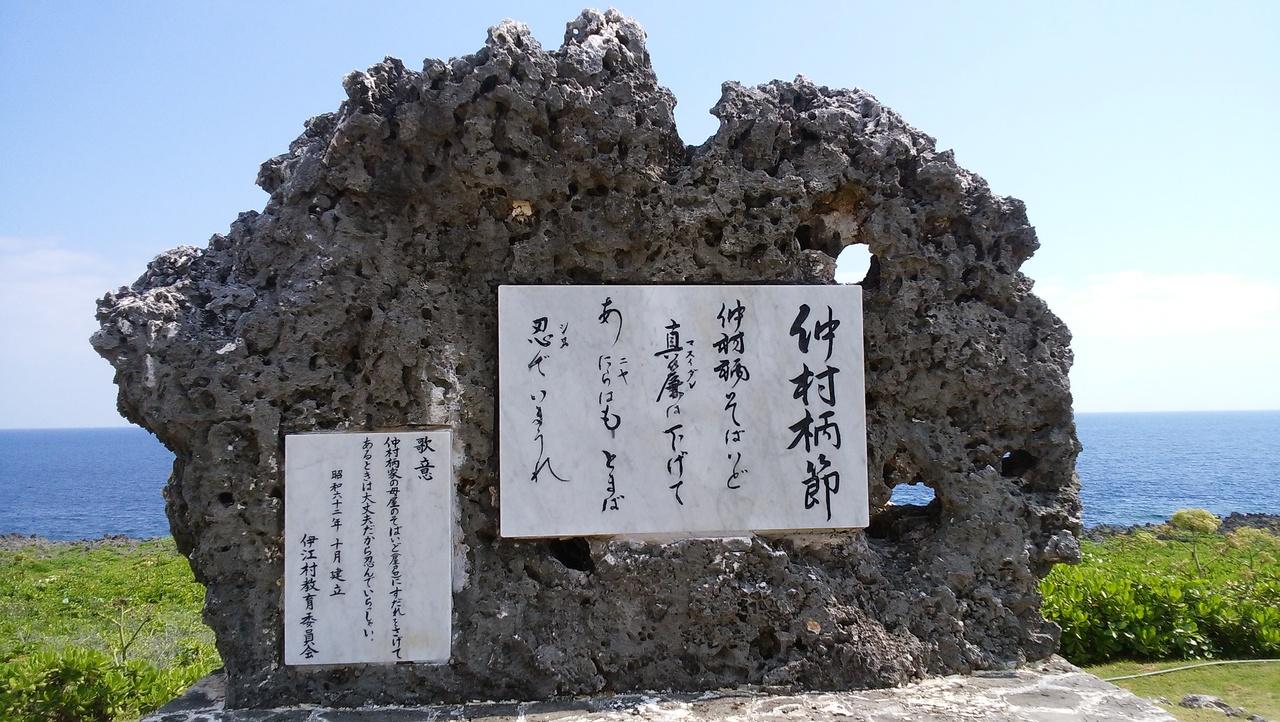 仲村柄節
仲村柄そばいど
マスイダル
真簾は下げて
あ
ニヤ
にらはもとまば
シヌ
忍でいまうれ
歌意
仲村柄家の母屋のそばいど屋にすだれをさげて
あるときは大丈夫だから忍んでいらっしゃい。
昭和六十二年十月建立
伊江村教育委員会